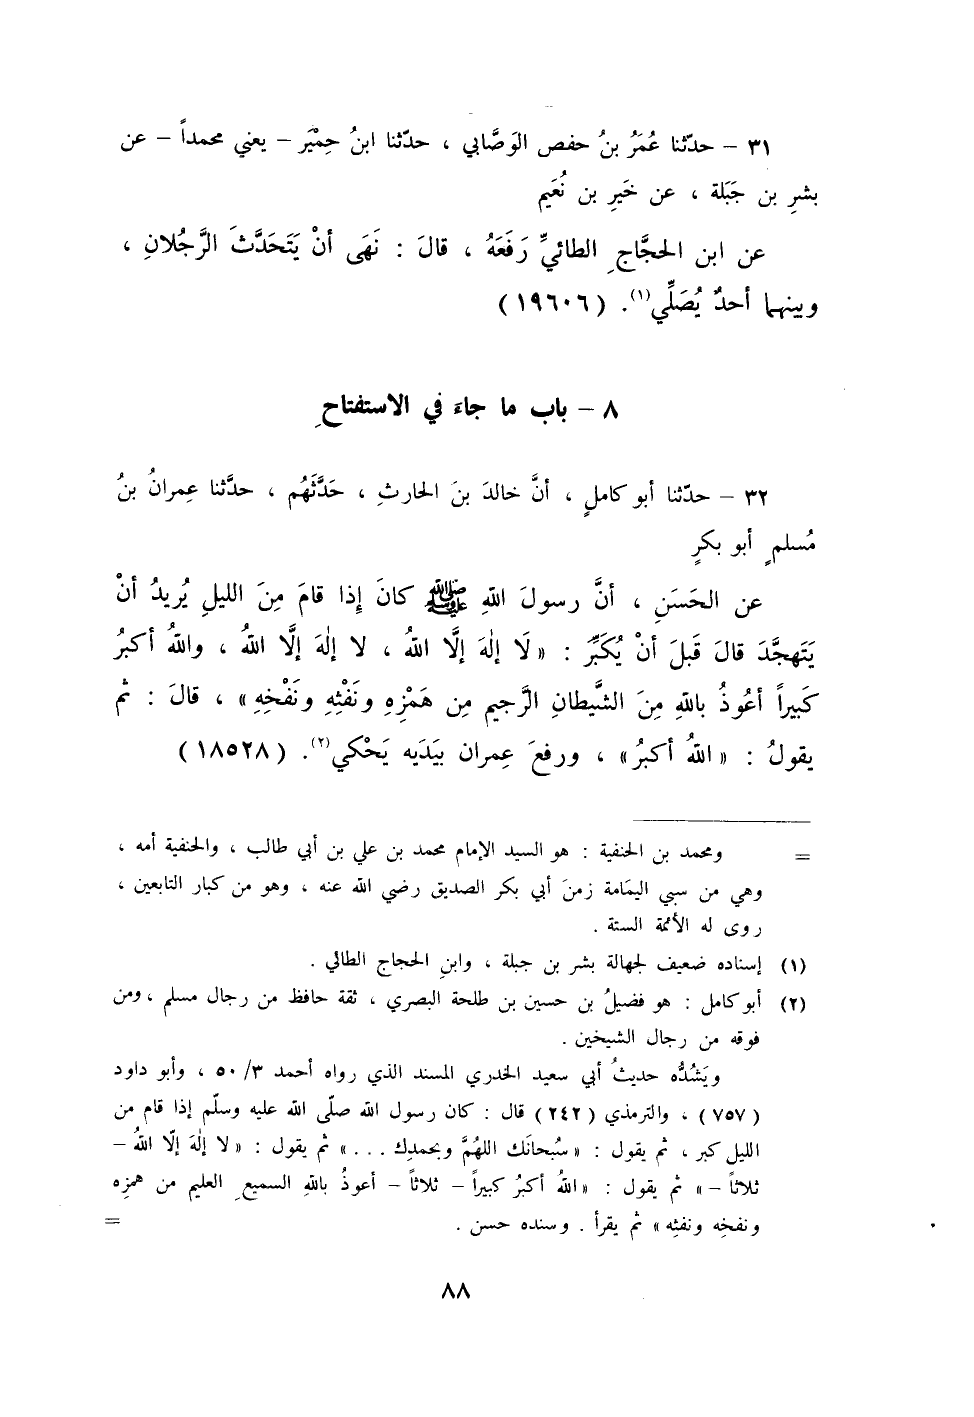 ٣١ – حدّثنا عُمَرُ بنُ حفص الوَصَّابي ، حدّثنا ابنُ حِمْيَر – يعني محمداً – عن
بشرِ بن جَبَلة ، عن خَيرِ بن نُعَيم
عن ابن الحجَّاجِ الطائيِّ رَفَعَهُ ، قالَ : نَهَى أنْ يَتَحَدَّثَ الرَّجُلانِ ،
وبينهما أحدٌ يُصَلِّي(١). (١٩٦٠٦)
٨ – باب ما جاءَ في الاستفتاحِ
٣٢ – حدّثنا أبو كاملٍ ، أنَّ خالدَ بنَ الحارثِ ، حَدَّثَهُم ، حدَّثنا عِمرانُ بنُ
مُسلمٍ أبو بكرٍ
عن الحَسَنِ ، أنَّ رسولَ اللهِ ﷺ كانَ إذا قامَ مِنَ الليلِ يُريدُ أنْ
يَتَهجَّدَ قالَ قَبلَ أنْ يُكَبِّرَ : « لَا إلٰهَ إلَّا اللهُ ، لا إلٰهَ إلَّا اللهُ ، واللهُ أكبرُ
كَبيراً أعُوذُ باللهِ مِنَ الشَّيطانِ الرَّجيم مِن هَمْزِهِ ونَفْثِهِ ونَفْخِهِ » ، قالَ : ثم
يقولُ : « اللهُ أكبرُ » ، ورفعَ عِمران بيَدَيه يَحْكي(٢). (١٨٥٢٨)
= ومحمد بن الحنفية : هو السيد الإمام محمد بن علي بن أبي طالب ، والحنفية أمه ،
وهي من سبي اليمَامة زمنَ أبي بكر الصديق رضي الله عنه ، وهو من كبار التابعين ،
روى له الأئمة الستة .
(١) إسناده ضعيف لجهالة بشر بن جبلة ، وابنِ الحجاج الطائي .
(٢) أبو كامل : هو فضيلُ بن حسين بن طلحة البصري ، ثقة حافظ من رجال مسلم ، ومن
فوقه من رجال الشيخين .
ويَشُدُّه حديثُ أبي سعيد الخدري المسند الذي رواه أحمد ٣/ ٥٠ ، وأبو داود
(٧٥٧) ، والترمذي (٢٤٢) قال : كان رسول الله صلّى الله عليه وسلّم إذا قام من
الليل كبر ، ثم يقول : « سُبحانَك اللهُمَّ وبحمدِك . . . » ثم يقول : « لا إلٰهَ إلّا اللهُ –
ثلاثاً – » ثم يقول : « اللهُ أكبرُ كبيراً – ثلاثاً – أعوذُ باللهِ السميعِ العليم من همزِه
ونفخِه ونفثِه » ثم يقرأ . وسنده حسن . =
٨٨